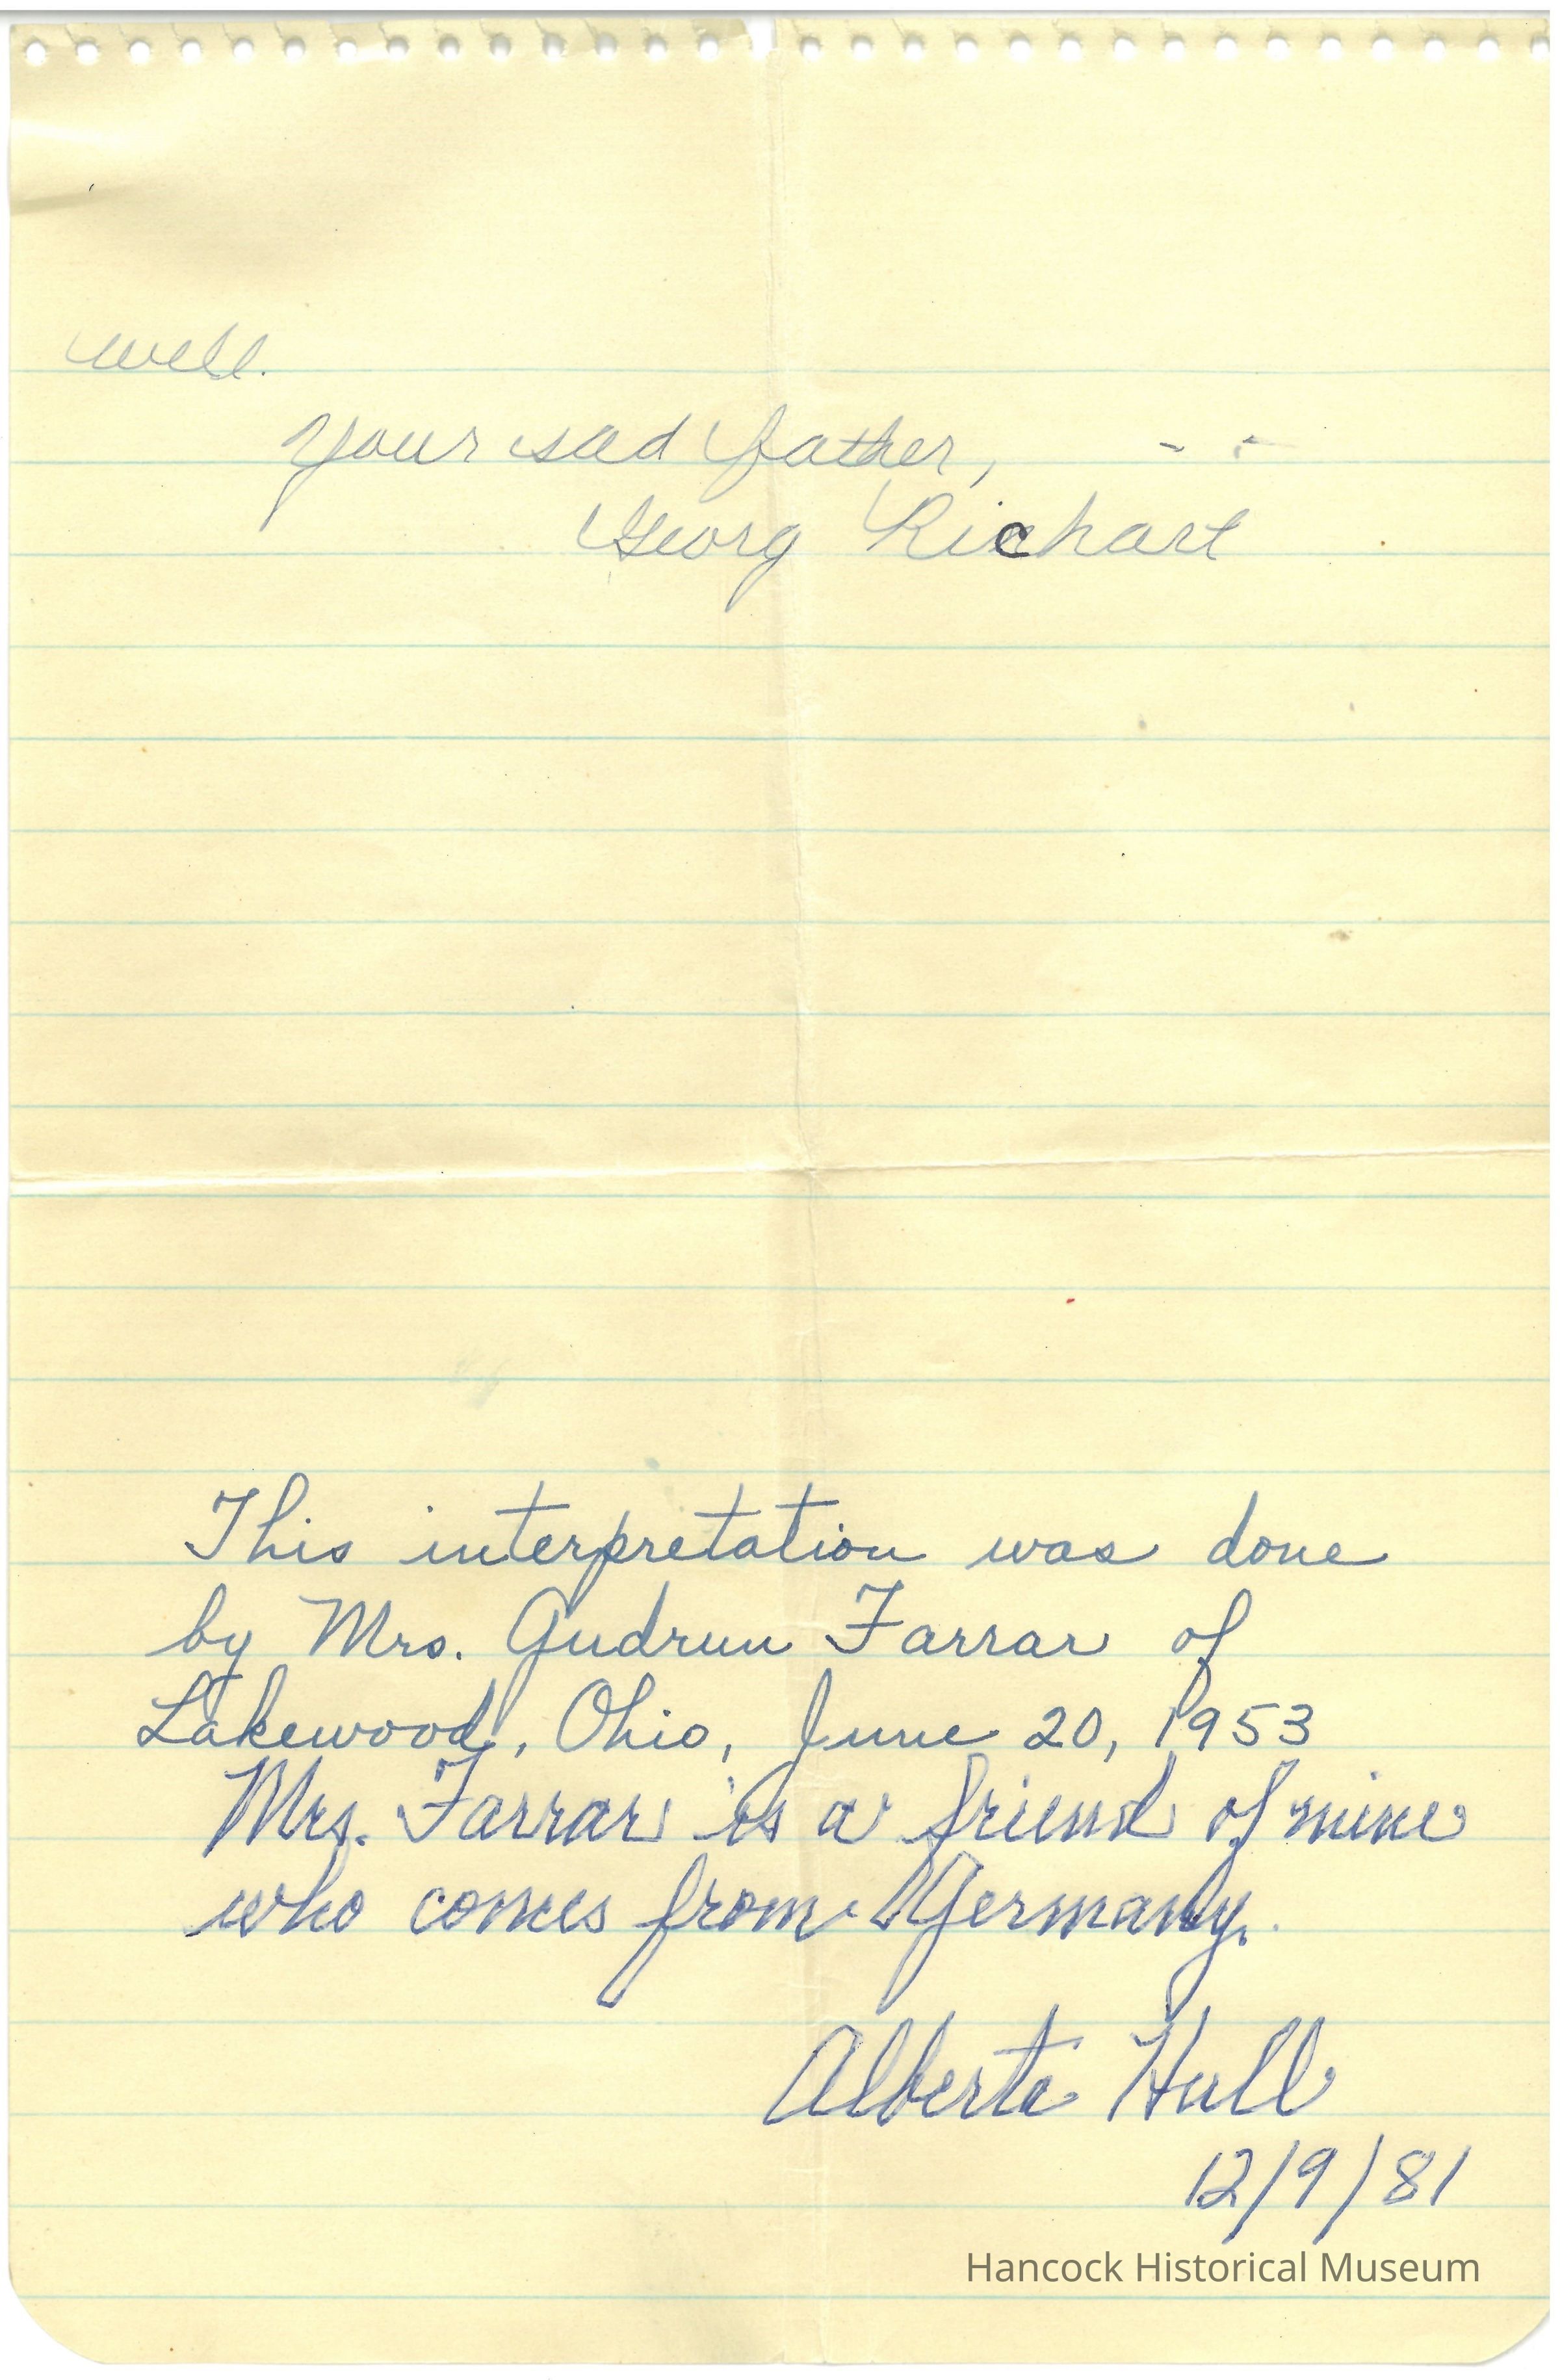 well.
Your sad father,
Georg Richart
This interpretation was done
by Mrs. Gudrun Farrar of
Lakewood, Ohio, June 20, 1953
Mrs. Farrar is a friend of mine
who comes from Germany.
Alberta Hull
12/9/81
Hancock Historical Museum